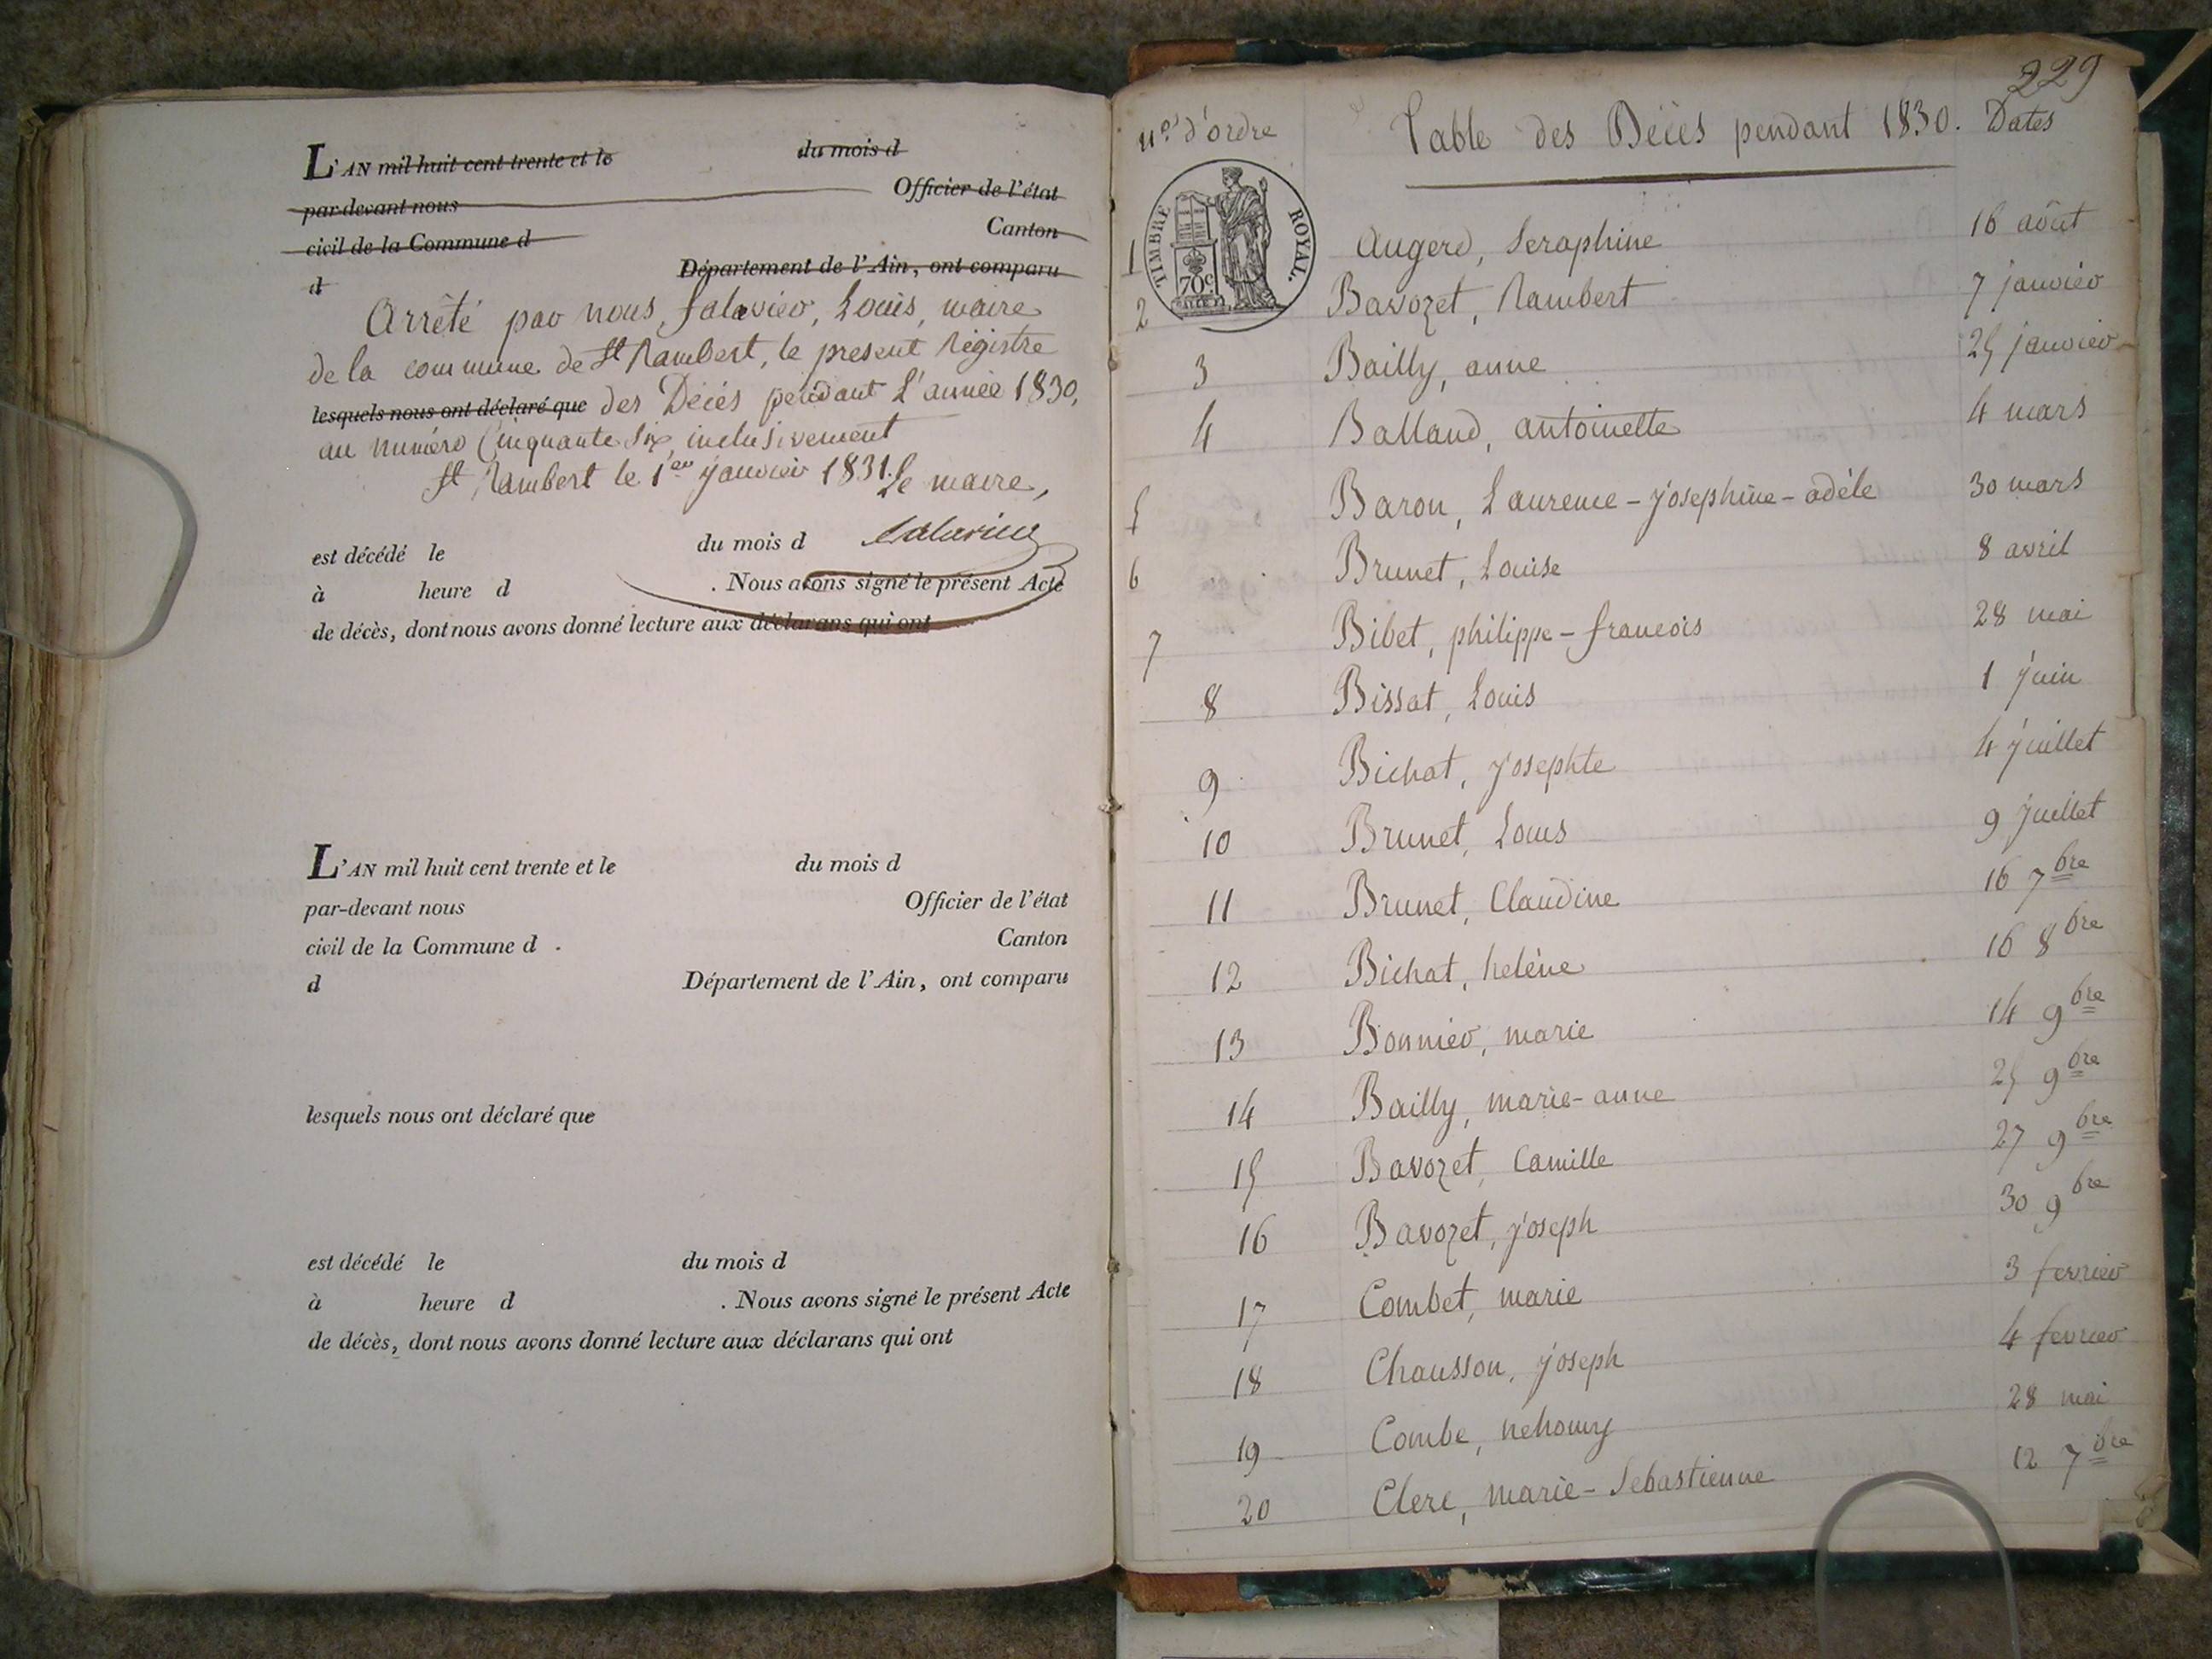 L'AN mil huit cent trente et le du mois d
par-devant nous Officier de l'état
civil de la Commune d Canton
d Département de l'Ain, ont comparu
Arrêté par nous, Salavier, Louis, maire
de la commune de St Rambert, le present Régistre
lesquels nous ont déclaré que des Décés pendant L'année 1830,
au numéro Cinquante Six inclusivement
St Rambert le 1er Janvier 1831. Le maire,
Salavier
est décédé le du mois d
à heure d . Nous avons signé le présent Acte
de décès, dont nous avons donné lecture aux déclarans qui ont
L'AN mil huit cent trente et le du mois d
par-devant nous Officier de l'état
civil de la Commune d Canton
d Département de l'Ain, ont comparu
lesquels nous ont déclaré que
est décédé le du mois d
à heure d . Nous avons signé le présent Acte
de décès, dont nous avons donné lecture aux déclarans qui ont
229
nos d'ordre Table des Décès pendant 1830. Dates
TIMBRE ROYAL.
70c
1 Augerd, Seraphine 16 août
2 Bavozet, Rambert 7 janvier
3 Bailly, anne 25 janvier
4 Balland, antoinette 4 mars
5 Baron, Laurence-josephine-adèle 30 mars
6 Brunet, Louise 8 avril
7 Bibet, philippe-francois 28 mai
8 Bissat, Louis 1 juin
9 Bichat, josephte 4 juillet
10 Brunet, Louis 9 juillet
11 Brunet, Claudine 16 7bre
12 Bichat, heléne 16 8bre
13 Bonnier, marie 14 9bre
14 Bailly, marie-anne 25 9bre
15 Bavozet, Camille 27 9bre
16 Bavozet, joseph 30 9bre
17 Combet, marie 3 fevrier
18 Chausson, joseph 4 fevrier
19 Combe, 28 mai
20 Clerc, marie-Sebastienne 12 7bre